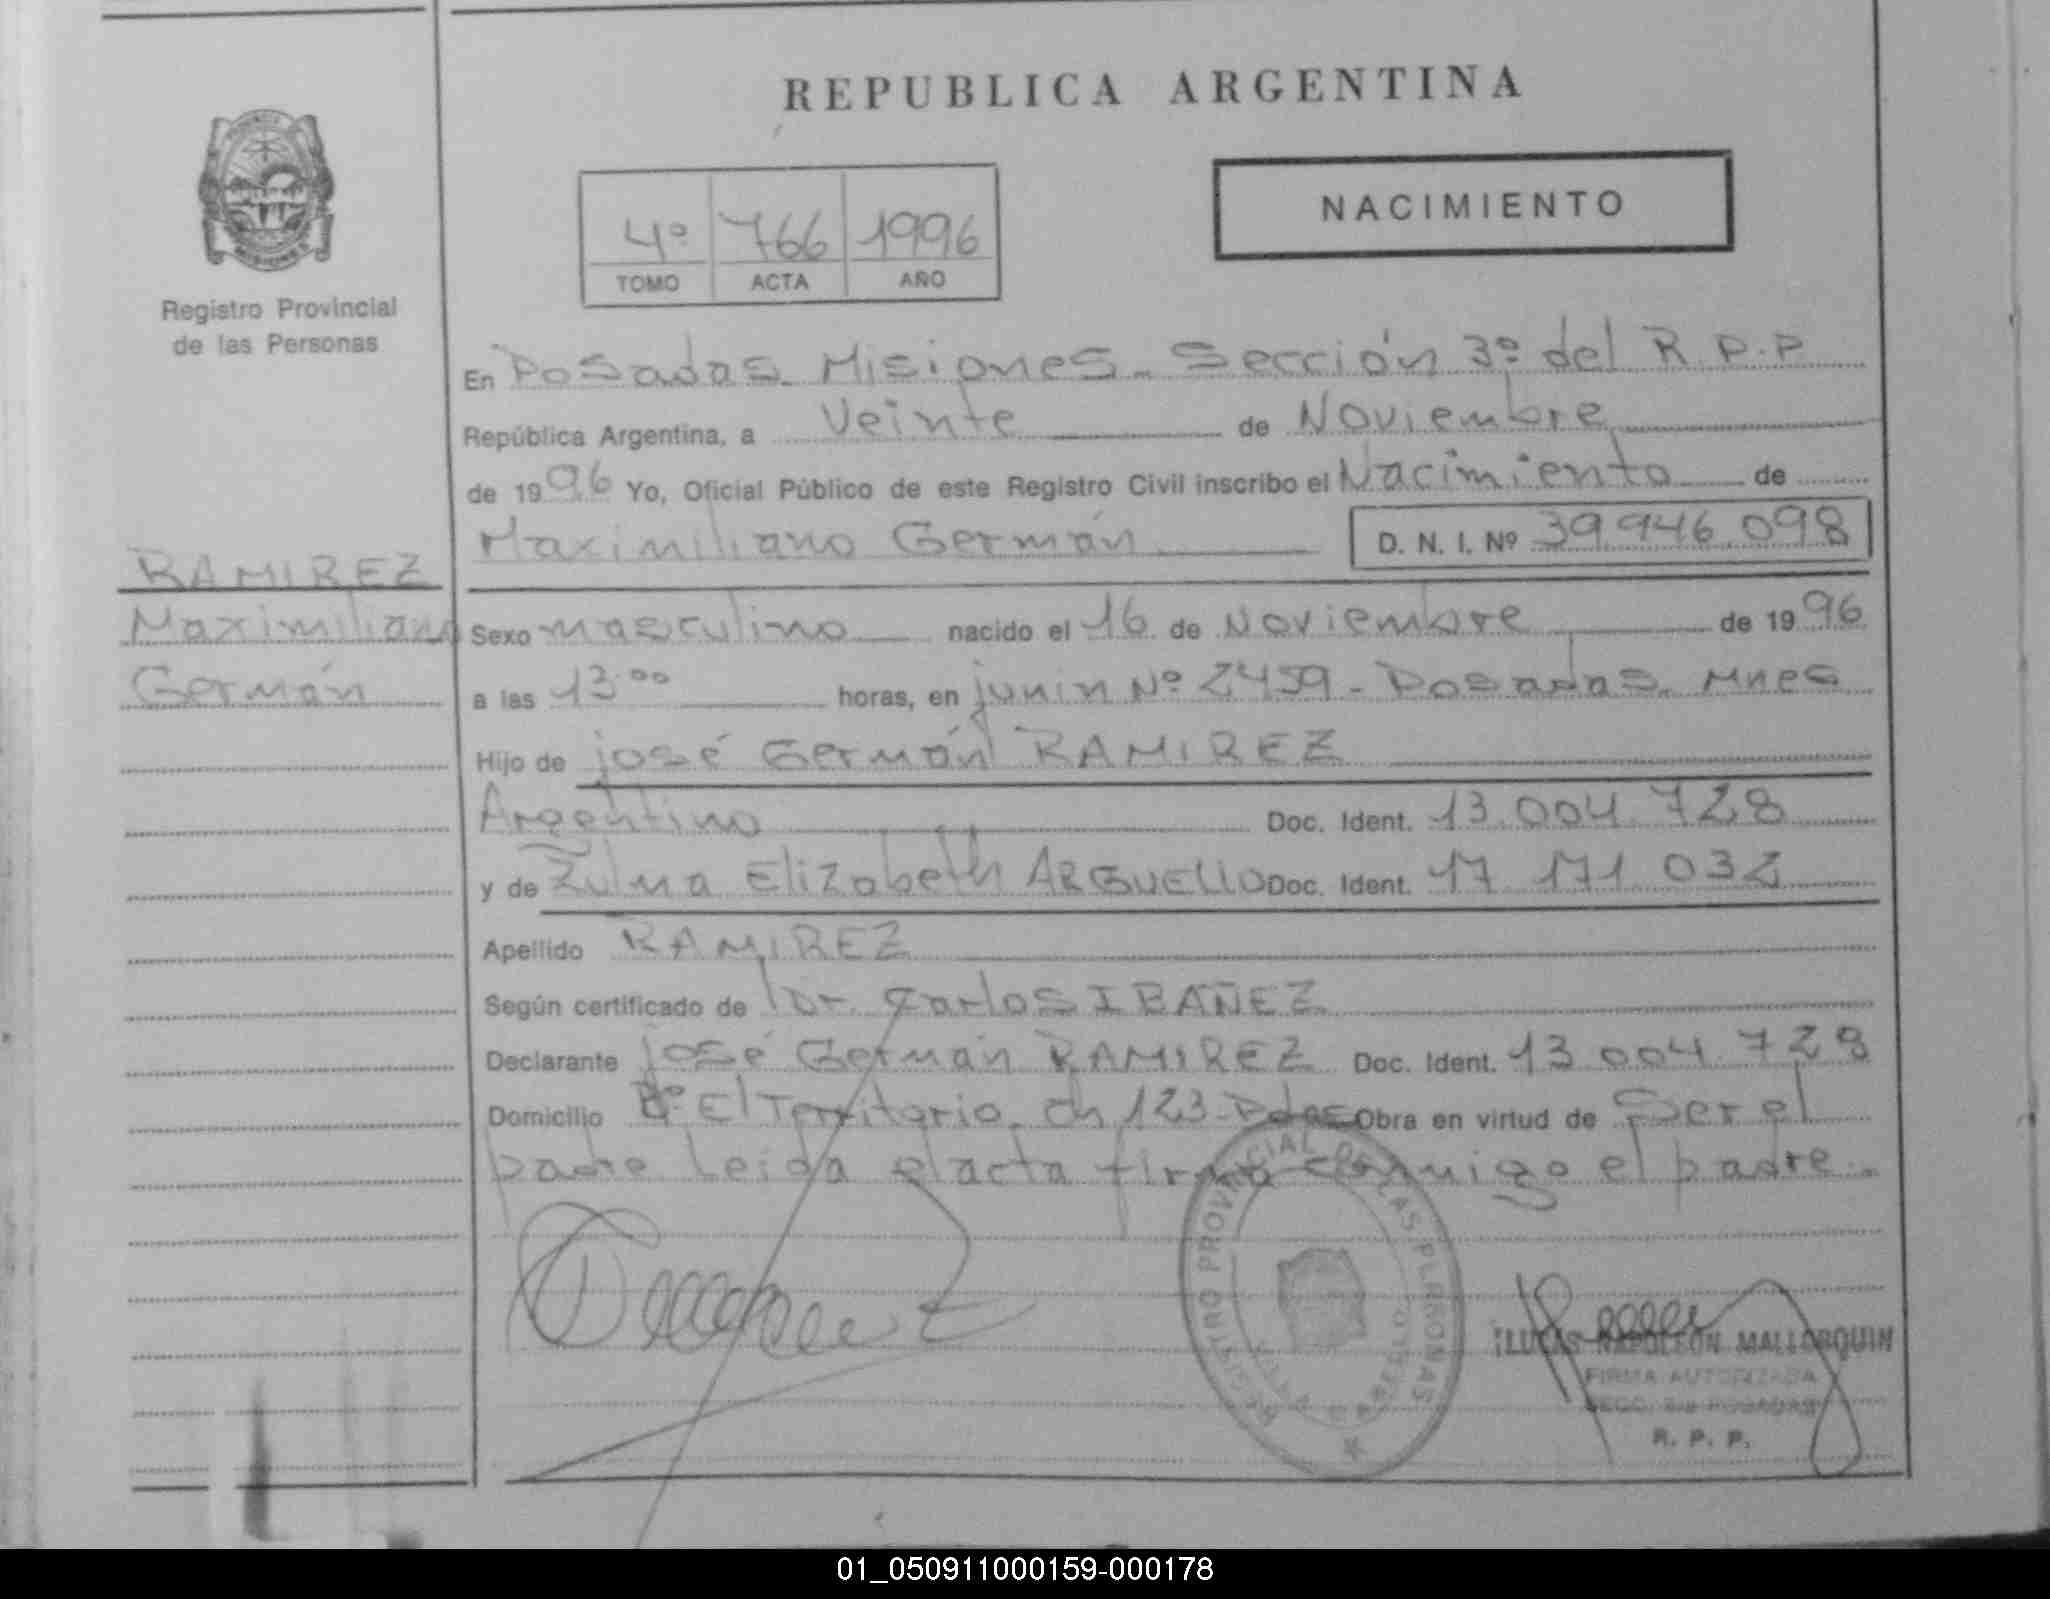 REPUBLICA ARGENTINA
NACIMIENTO
4º 766 1996
TOMO ACTA AÑO
Registro Provincial
de las Personas
RAMIREZ
Maximiliano
Germán
En Posadas Misiones Sección 3º del R.P.P
República Argentina, a Veinte de Noviembre
de 1996 Yo, Oficial Público de este Registro Civil inscribo el Nacimiento de
Maximiliano Germán D. N. I. Nº 39.946.098
Sexo masculino nacido el 16 de Noviembre de 1996
a las 13:00 horas, en junin Nº 2459 - Posadas. Mnes
Hijo de josé Germán RAMIREZ
Argentino Doc. Ident. 13.004.728
y de Zulma Elizabeth ARGUELLO Doc. Ident. 17 171 032
Apellido RAMIREZ
Según certificado de Dr. Carlos IBAÑEZ
Declarante josé Germán RAMIREZ Doc. Ident. 13 004 728
Domicilio Bº El Territorio. Ch 123 - Pdas Obra en virtud de Ser el
padre Leida el acta firma conmigo el padre.
REGISTRO PROVINCIAL DE LAS PERSONAS
LUCAS NAPOLEON MALLORQUIN
FIRMA AUTORIZADA
SECC. 3ra POSADAS
R. P. P.
01_050911000159-000178